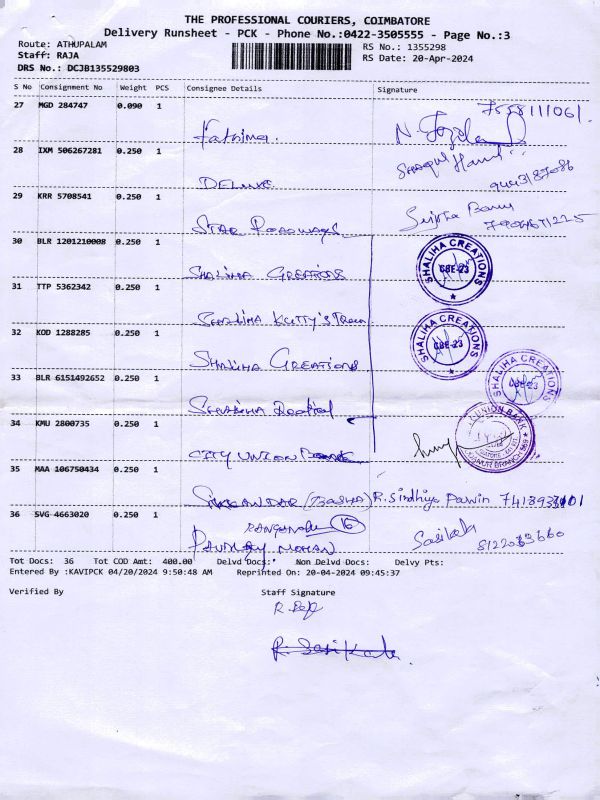 THE PROFESSIONAL COURIERS, COIMBATORE
Delivery Runsheet - PCK - Phone No.:0422-3505555 - Page No.:3
Route: ATHUPALAM
Staff: RAJA
DRS No.: DCJB135529803
RS No.: 1355298
RS Date: 20-Apr-2024
S No Consignment No Weight PCS Consignee Details Signature
27 MGD 284747 0.090 1 Fathima.
28 IXM 506267281 0.250 1 DELUXE
29 KRR 5708541 0.250 1 STAR ROADWAYS
30 BLR 1201210008 0.250 1 SHALIHA CREATIONS
SHALIHA CREATIONS
CBE-23
31 TTP 5362342 0.250 1
32 KOD 1288285 0.250 1 SHALIHA CREATIONS
SHALIHA CREATIONS
CBE-23
33 BLR 6151492652 0.250 1
SHALIHA CREATIONS
CBE-23
34 KMU 2800735 0.250 1 CITY UNION BANK
UNION BANK
35 MAA 106750434 0.250 1 SIKKANDAR (BASHA) R. Sindhiya Parvin
36 SVG 4663020 0.250 1 MOHAN 16 Sasikala 8122033660
Tot Docs: 36 Tot COD Amt: 400.00 Delvd Docs: Non Delvd Docs: Delvy Pts:
Entered By :KAVIPCK 04/20/2024 9:50:48 AM Reprinted On: 20-04-2024 09:45:37
Verified By Staff Signature
R. Sasikala.